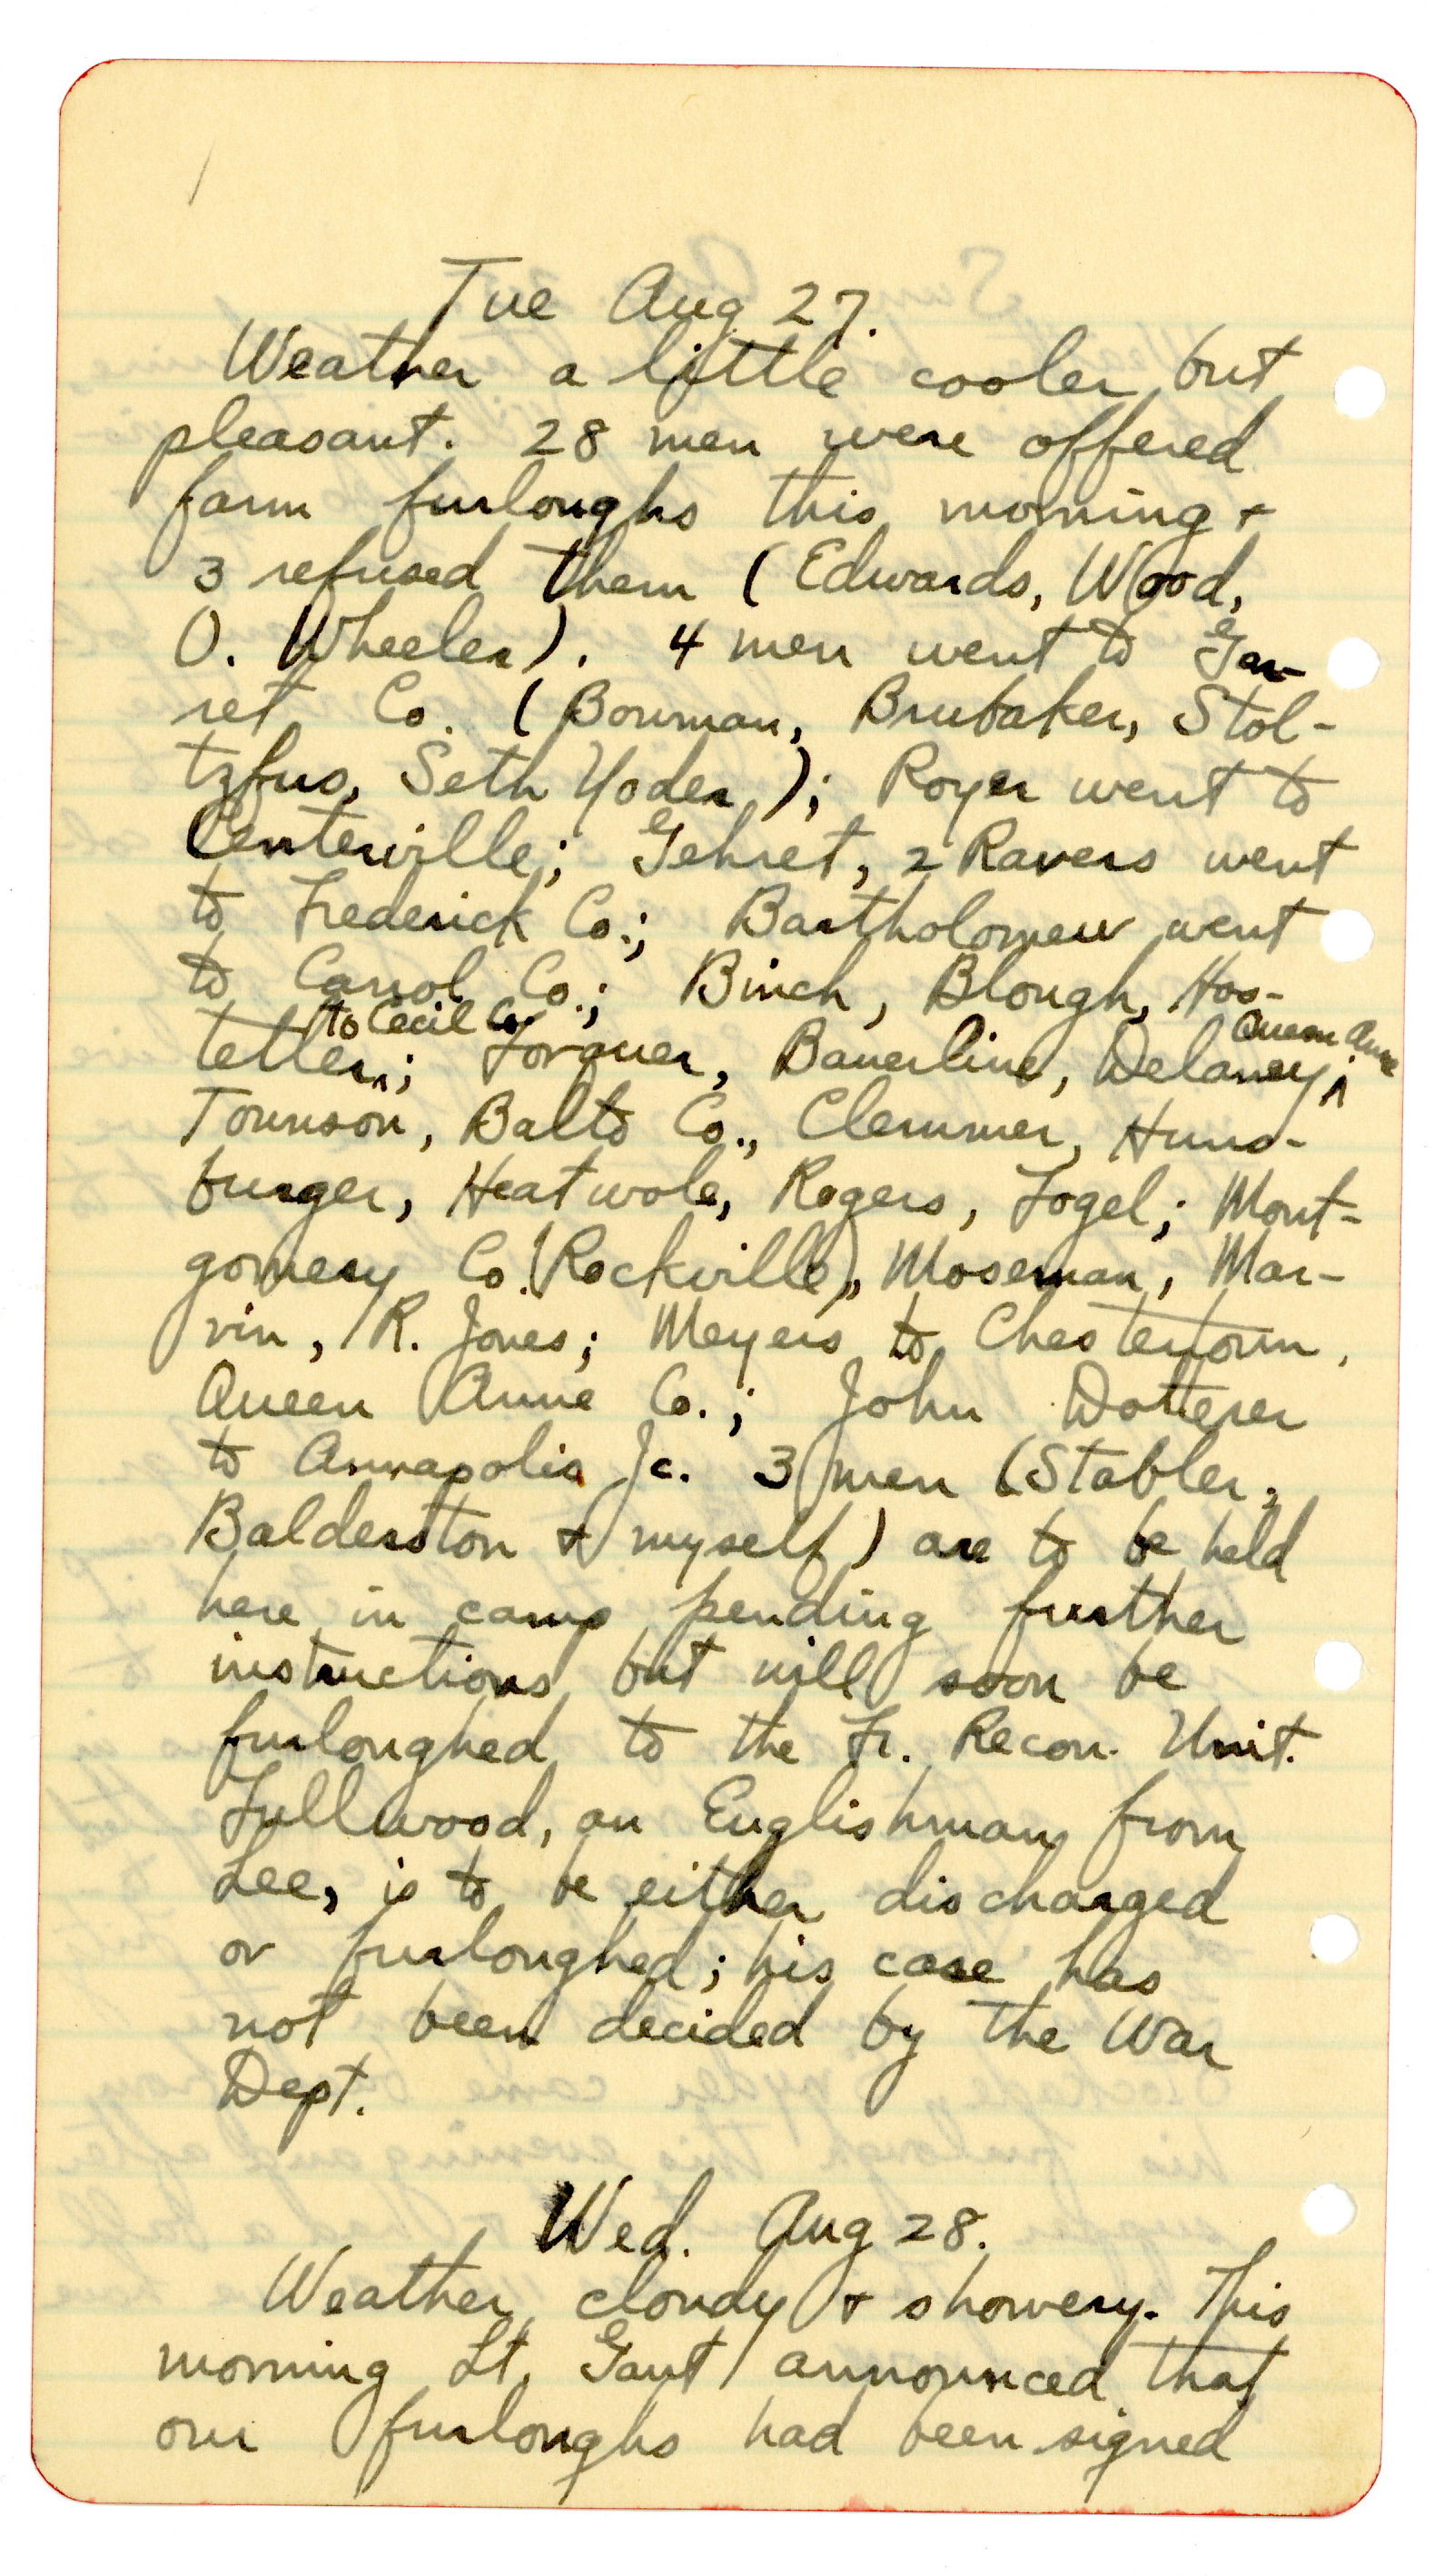 Tue Aug 27.
Weather a little cooler but
pleasant. 28 men were offered
farm furloughs this morning +
3 refused them (Edwards, Wood,
O. Wheeler). 4 men went to Gar-
ret Co. (Bowman, Brubaker, Stol-
tzfus, Seth Yoder); Royer went to
Centerville; Gehret, 2 Ravers went
to Frederick Co.; Bartholomew went
to Carrol Co.; Binch, Blough, Hos-
tetler, to Cecil Co.; Forquer, Bauerline, Delaney, Queen Anne;
Townson, Balto Co., Clemmer, Huns-
burger, Heatwole, Rogers, Fogel; Mont-
gomery Co. (Rockville), Moseman, Mar-
vin, R. Jones; Meyers to Chestertown,
Queen Anne Co.; John Dotterer
to Annapolis Jc. 3 men (Stabler,
Balderston + myself) are to be held
here in camp pending further
instructions but will soon be
furloughed to the Fr. Recon. Unit.
Fullwood, an Englishman from
Lee, is to be either discharged
or furloughed; his case has
not been decided by the War
Dept.
Wed. Aug 28.
Weather cloudy + showery. This
morning Lt. Gant announced that
our furloughs had been signed